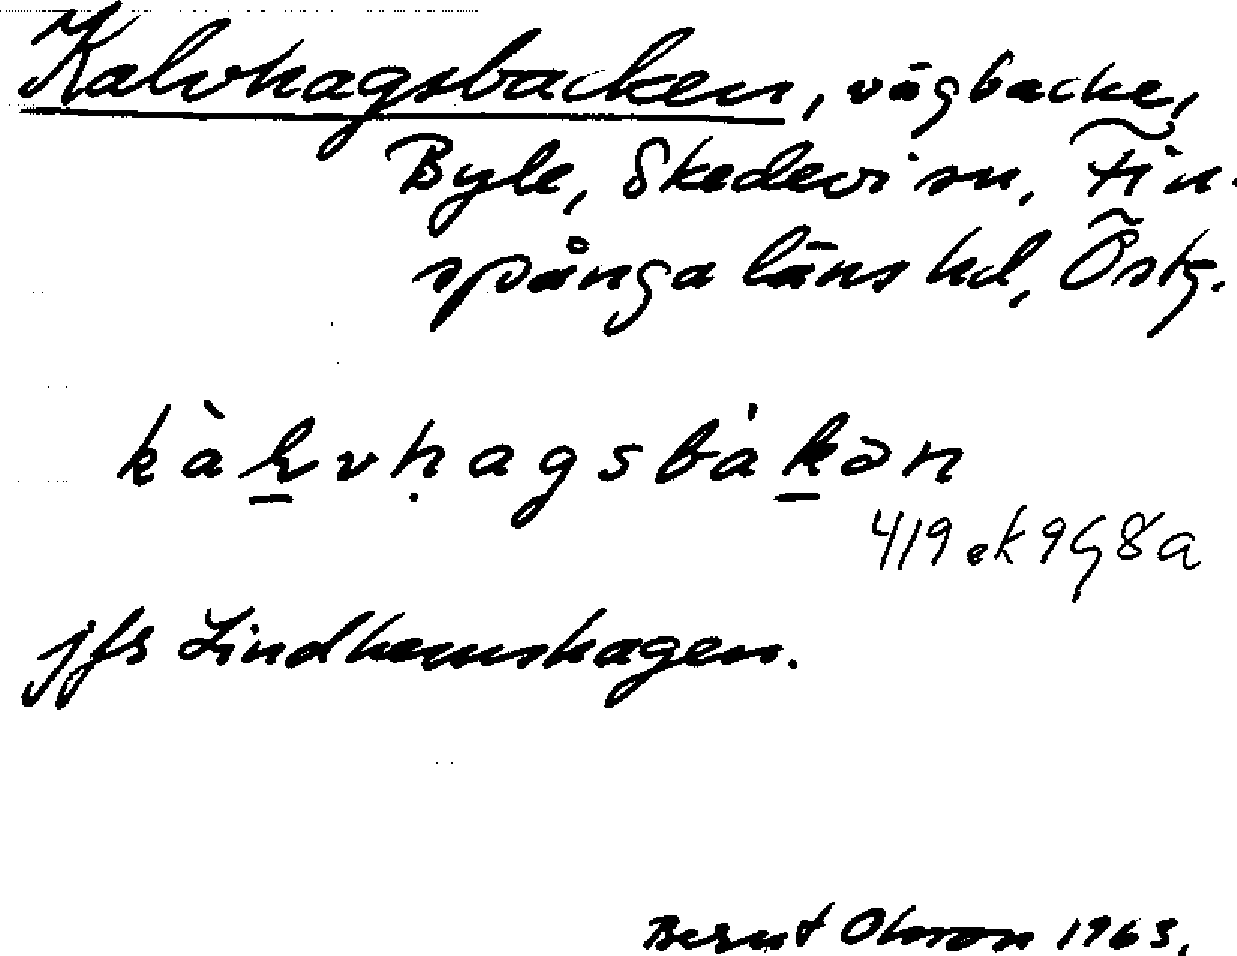 Kalvhagsbacken, vägbacke,
Byle, Skedevi sn, Fin-
spånga läns hd, Östg.
kàlvhagsbákən
419 ek 9G 8a
jfs Lindhemshagen.
Bernt Olsson 1963.